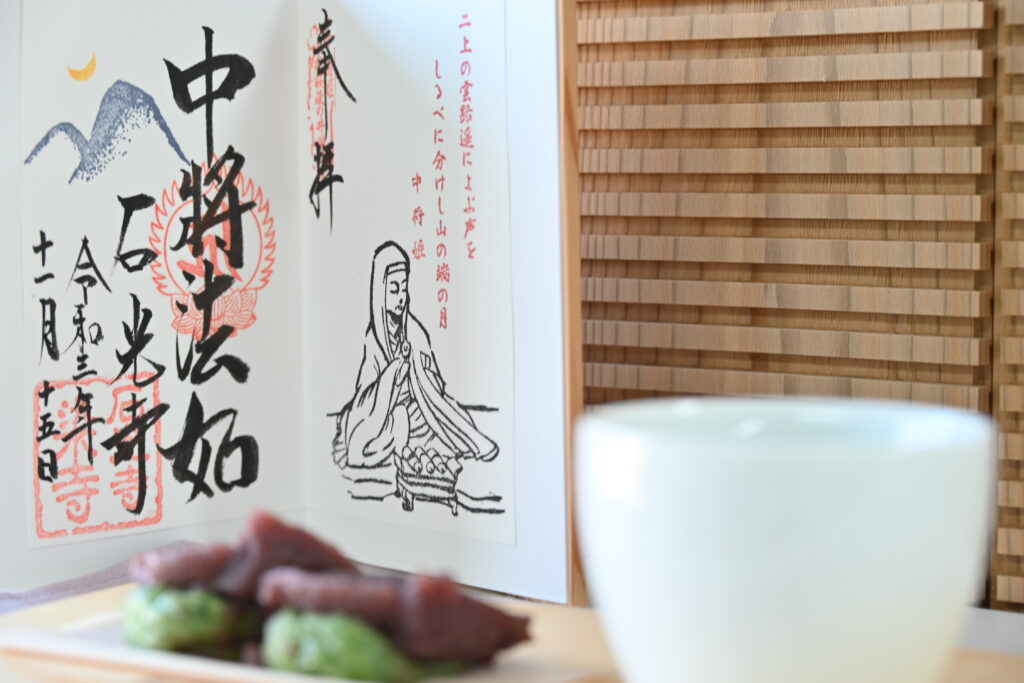 二上の雲路遥によぶ声を
しるべに分けし山の端の月
中将姫
奉拝
中将法如
石光寺
令和三年
十一月十五日